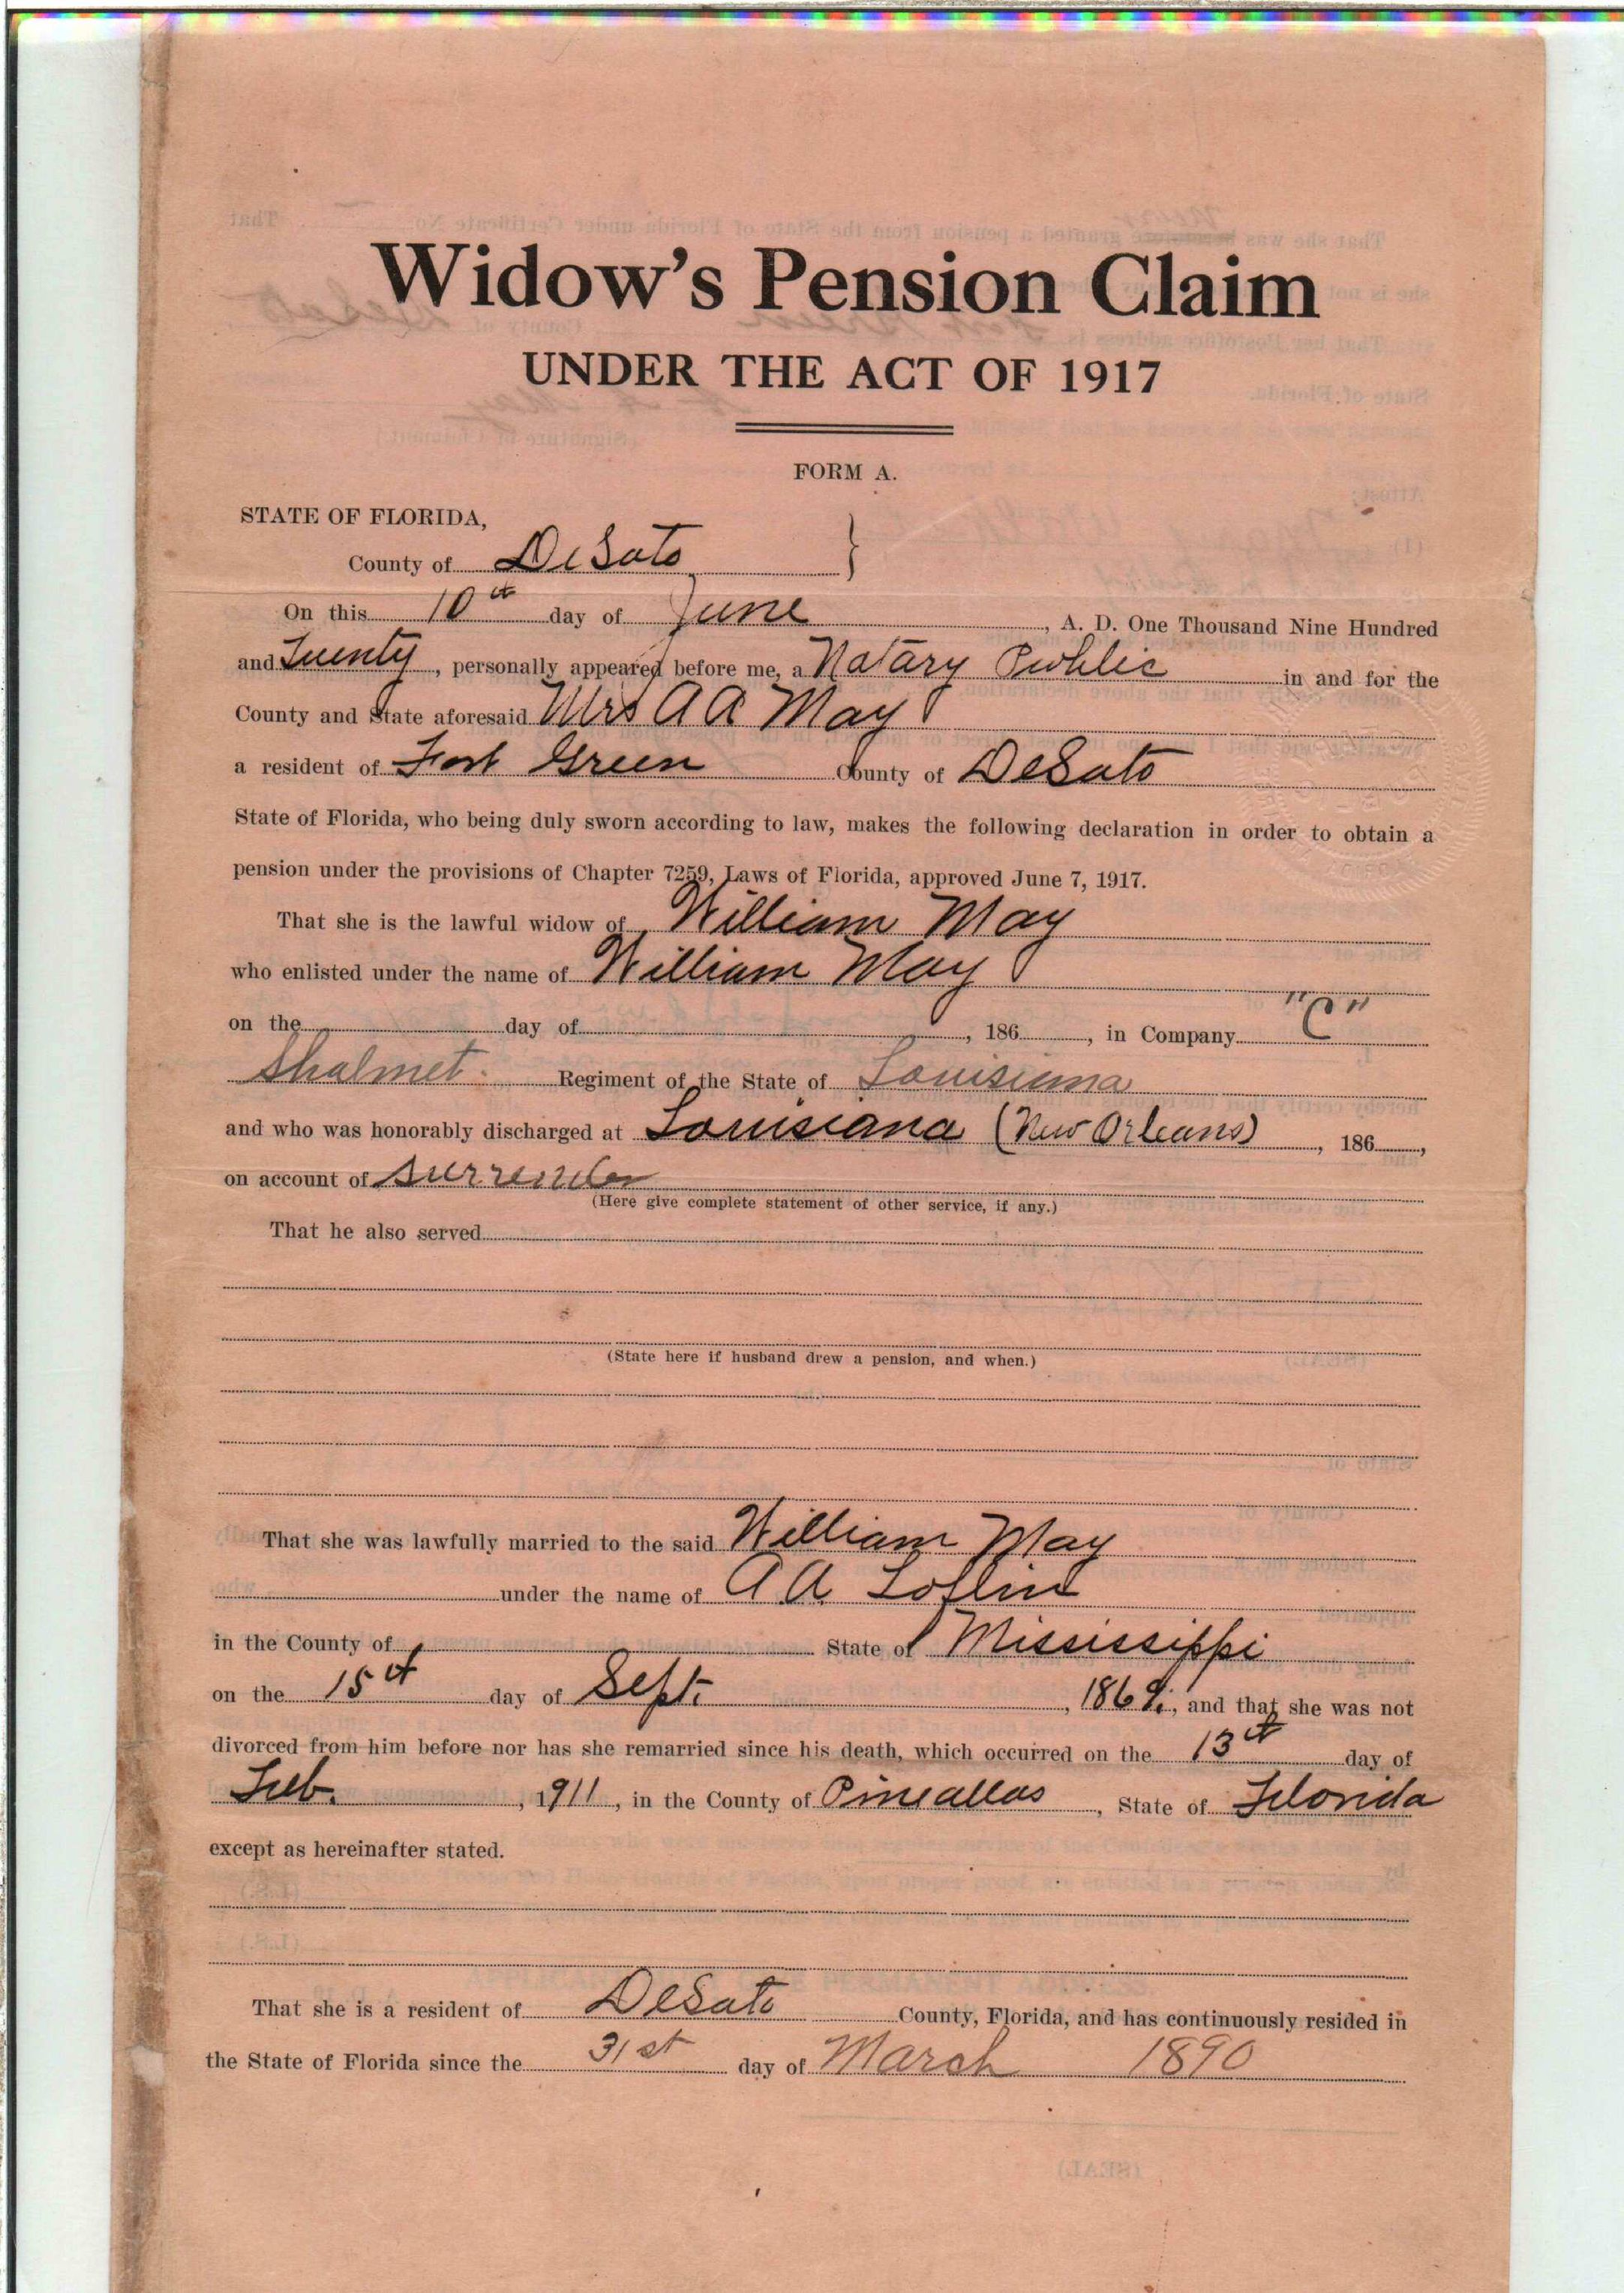 Widow's Pension Claim
UNDER THE ACT OF 1917
FORM A.
STATE OF FLORIDA,
County of DeSoto }
On this 10th day of June, A. D. One Thousand Nine Hundred
and Twenty, personally appeared before me, a Notary Public in and for the
County and State aforesaid Mrs A A May
a resident of Fort Green County of DeSoto
State of Florida, who being duly sworn according to law, makes the following declaration in order to obtain a
pension under the provisions of Chapter 7259, Laws of Florida, approved June 7, 1917.
That she is the lawful widow of William May
who enlisted under the name of William May
on the day of , 186 , in Company "C"
Shalmet. Regiment of the State of Louisiana
and who was honorably discharged at Louisiana (New Orleans), 186 ,
on account of surrender
(Here give complete statement of other service, if any.)
That he also served
(State here if husband drew a pension, and when.)
That she was lawfully married to the said William May
under the name of A A Loflin
in the County of State of Mississippi
on the 15th day of Sept., 1869, and that she was not
divorced from him before nor has she remarried since his death, which occurred on the 13th day of
Feb., 1911, in the County of Pineallas, State of Florida
except as hereinafter stated.
That she is a resident of DeSoto County, Florida, and has continuously resided in
the State of Florida since the 31st day of March 1890